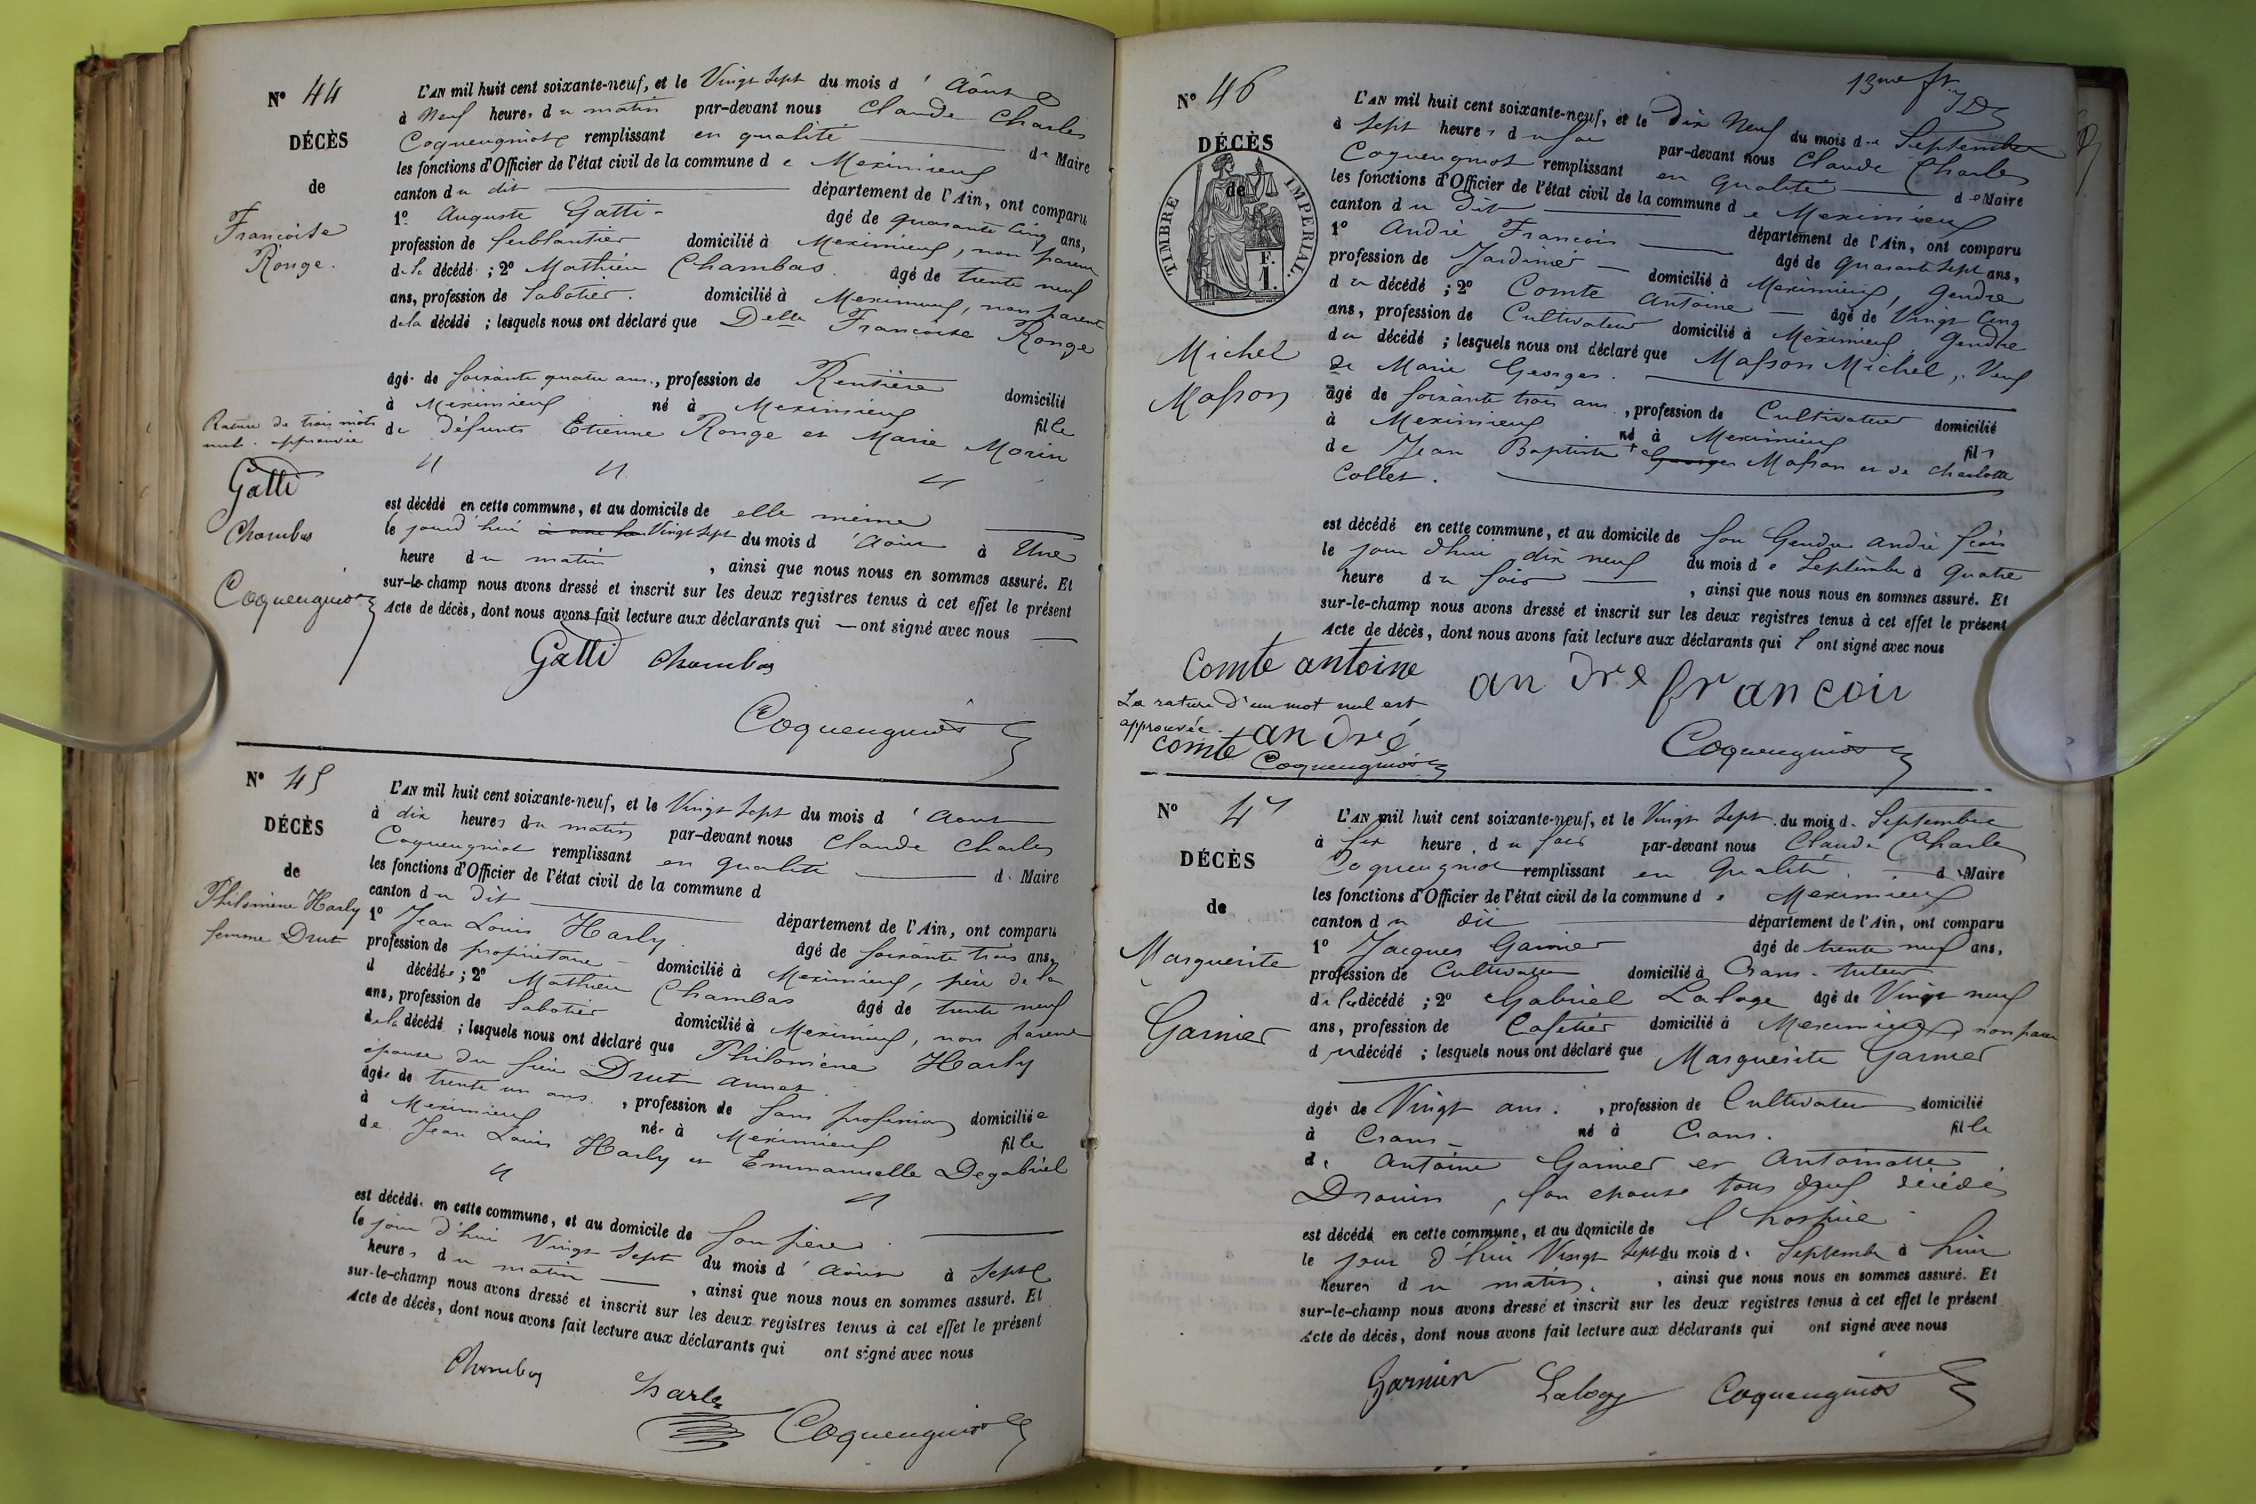 N° 44
DÉCÈS
de
Françoise
Ronge.
Rature de trois mots
nuls approuvée
Gatti
Chambas
Coquengniot
L'AN mil huit cent soixante-neuf, et le Vingt Sept du mois d' Août
à Neuf heures du matin par-devant nous Claude Charles
Coquengniot remplissant en qualité de Maire
les fonctions d'Officier de l'état civil de la commune de Meximieux
canton du dit département de l'Ain, ont comparu
1° Auguste Gatti âgé de quarante cinq ans,
profession de ferblantier domicilié à Meximieux, non parent
de la décédé ; 2° Mathieu Chambas. âgé de trente neuf
ans, profession de Sabotier. domicilié à Meximieux, non parent
de la décédé ; lesquels nous ont déclaré que Delle Françoise Ronge
âgé de soixante quatre ans, profession de Rentière domicilié
à Meximieux né à Meximieux fille
de défunts Etienne Ronge et Marie Morin
est décédé en cette commune, et au domicile de elle même
le jourd'hui Vingt Sept du mois d' Août à Une
heure du matin, ainsi que nous nous en sommes assuré. Et
sur-le-champ nous avons dressé et inscrit sur les deux registres tenus à cet effet le présent
Acte de décès, dont nous avons fait lecture aux déclarants qui — ont signé avec nous
Gatti Chambas
Coquengniot
N° 45
DÉCÈS
de
Philomène Harly
femme Drut
L'AN mil huit cent soixante-neuf, et le Vingt Sept du mois d' Août
à dix heures du matin par-devant nous Claude Charles
Coquengniot remplissant en qualité de Maire
les fonctions d'Officier de l'état civil de la commune d
canton du dit département de l'Ain, ont comparu
1° Jean Louis Harly. âgé de soixante trois ans,
profession de propriétaire domicilié à Meximieux, père de la
d décédée ; 2° Mathieu Chambas âgé de trente neuf
ans, profession de Sabotier domicilié à Meximieux, non parent
de la décédé ; lesquels nous ont déclaré que Philomène Harly
épouse du sieur Drut
âgée de trente un ans, profession de Sans profession domiciliée
à Meximieux née à Meximieux fille
de Jean Louis Harly et Emmanuelle Degabriel
est décédé en cette commune, et au domicile de son père.
le jour d'hui Vingt Sept du mois d' Août à Sept
heures du matin, ainsi que nous nous en sommes assuré. Et
sur-le-champ nous avons dressé et inscrit sur les deux registres tenus à cet effet le présent
Acte de décès, dont nous avons fait lecture aux déclarants qui ont signé avec nous
Chambas
harly
Coquengniot
13me
N° 46
DÉCÈS
de
TIMBRE IMPERIAL.
F.
1.
Michel
Masson
L'AN mil huit cent soixante-neuf, et le Dix Neuf du mois de Septembre
à Sept heures du soir par-devant nous Claude Charles
Coquengniot remplissant en qualité de Maire
les fonctions d'Officier de l'état civil de la commune de Meximieux
canton du dit département de l'Ain, ont comparu
1° André François âgé de quarante sept ans,
profession de Jardinier domicilié à Meximieux, gendre
du décédé ; 2° Comte Antoine âgé de Vingt cinq
ans, profession de Cultivateur domicilié à Meximieux gendre
du décédé ; lesquels nous ont déclaré que Masson Michel, Veuf
de Marie Georges.
âgé de soixante trois ans, profession de Cultivateur domicilié
à Meximieux né à Meximieux fils
de Jean Baptiste Georges Masson et de Charlotte
Collet.
est décédé en cette commune, et au domicile de son Gendre andré fçois
le jour d'hui dix neuf du mois de Septembre à quatre
heure du soir, ainsi que nous nous en sommes assuré. Et
sur-le-champ nous avons dressé et inscrit sur les deux registres tenus à cet effet le présent
Acte de décès, dont nous avons fait lecture aux déclarants qui l'ont signé avec nous
Comte antoine andre francoir
La rature d'un mot nul est
approuvée andré
comte Coquengniot
Coquengniot
N° 47
DÉCÈS
de
Marguerite
Garnier
L'AN mil huit cent soixante-neuf, et le Vingt Sept du mois de Septembre
à six heure du soir par-devant nous Claude Charles
Coquengniot remplissant en qualité de Maire
les fonctions d'Officier de l'état civil de la commune de Meximieux
canton du dit département de l'Ain, ont comparu
1° Jacques Garnier âgé de trente neuf ans,
profession de Cultivateur domicilié à Crans. tuteur
de la décédé ; 2° Gabriel Laloge âgé de Vingt neuf
ans, profession de Cafetier domicilié à Meximieux, non paren
du décédé ; lesquels nous ont déclaré que Marguerite Garnier
âgé de Vingt ans., profession de Cultivateur domicilié
à Crans né à Crans. fille
de Antoine Garnier et Antoinette
Drouin, son épouse tous deux décédés
est décédé en cette commune, et au domicile de l'hospice
le jour d'hui Vingt Sept du mois de Septembre à huit
heures du matin, ainsi que nous nous en sommes assuré. Et
sur-le-champ nous avons dressé et inscrit sur les deux registres tenus à cet effet le présent
Acte de décès, dont nous avons fait lecture aux déclarants qui ont signé avec nous
Garnier Laloge Coquengniot